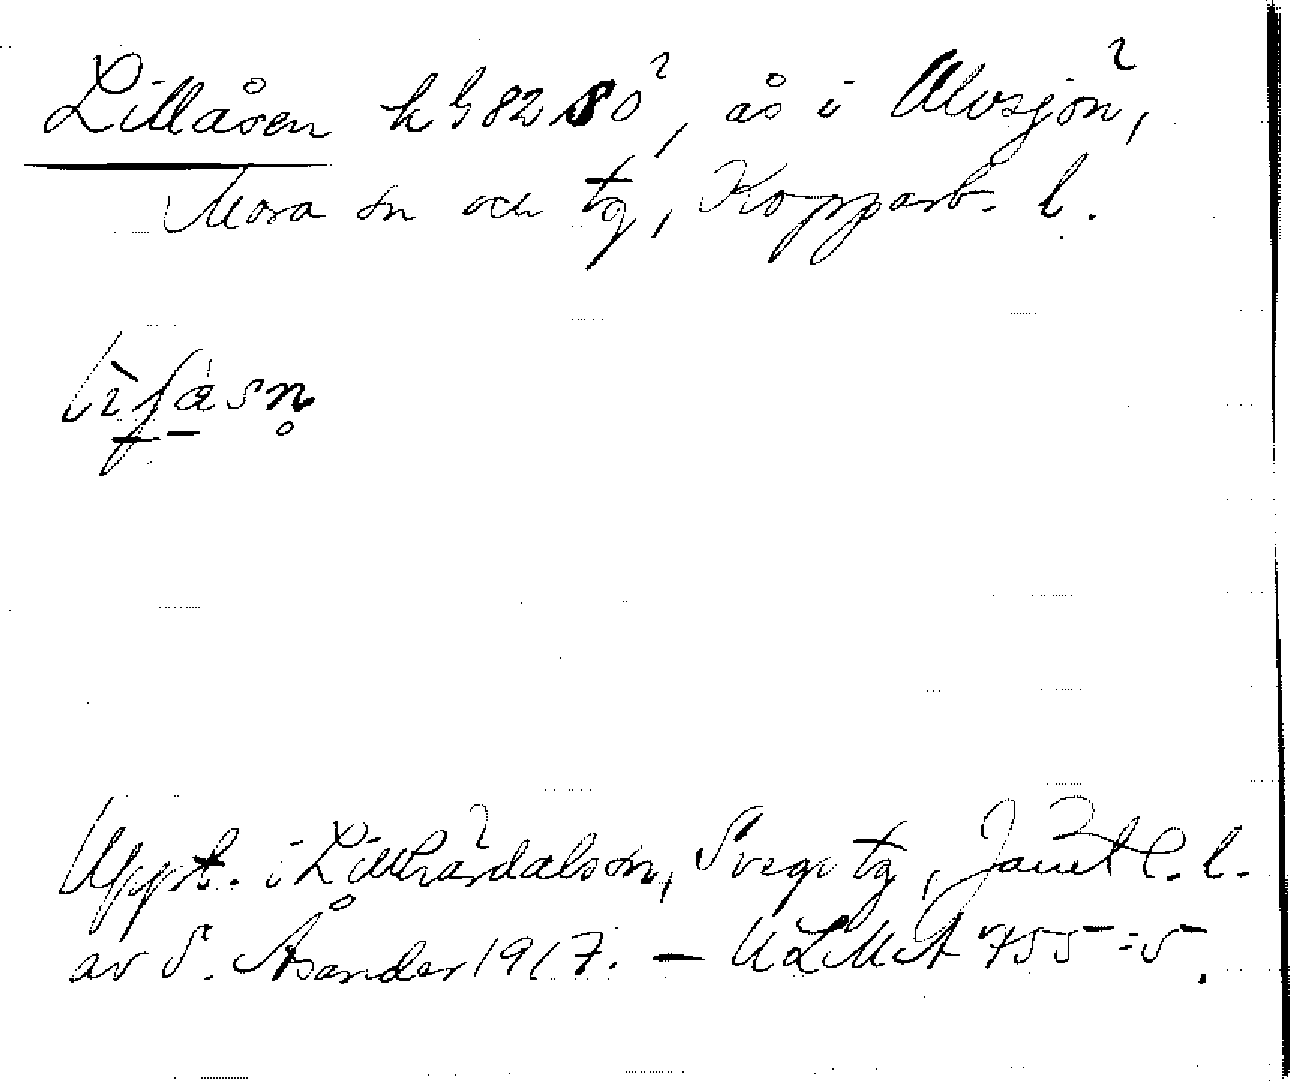 Lillåsen h 5 82 80², ås i Ulvsjön²,
Mora sn och tg, Kopparb. l.
Uppt. i Lillhärdals sn, Svegs tg, Jämtl. l.
av S. Åsander 1917. — ULMA 755:5.